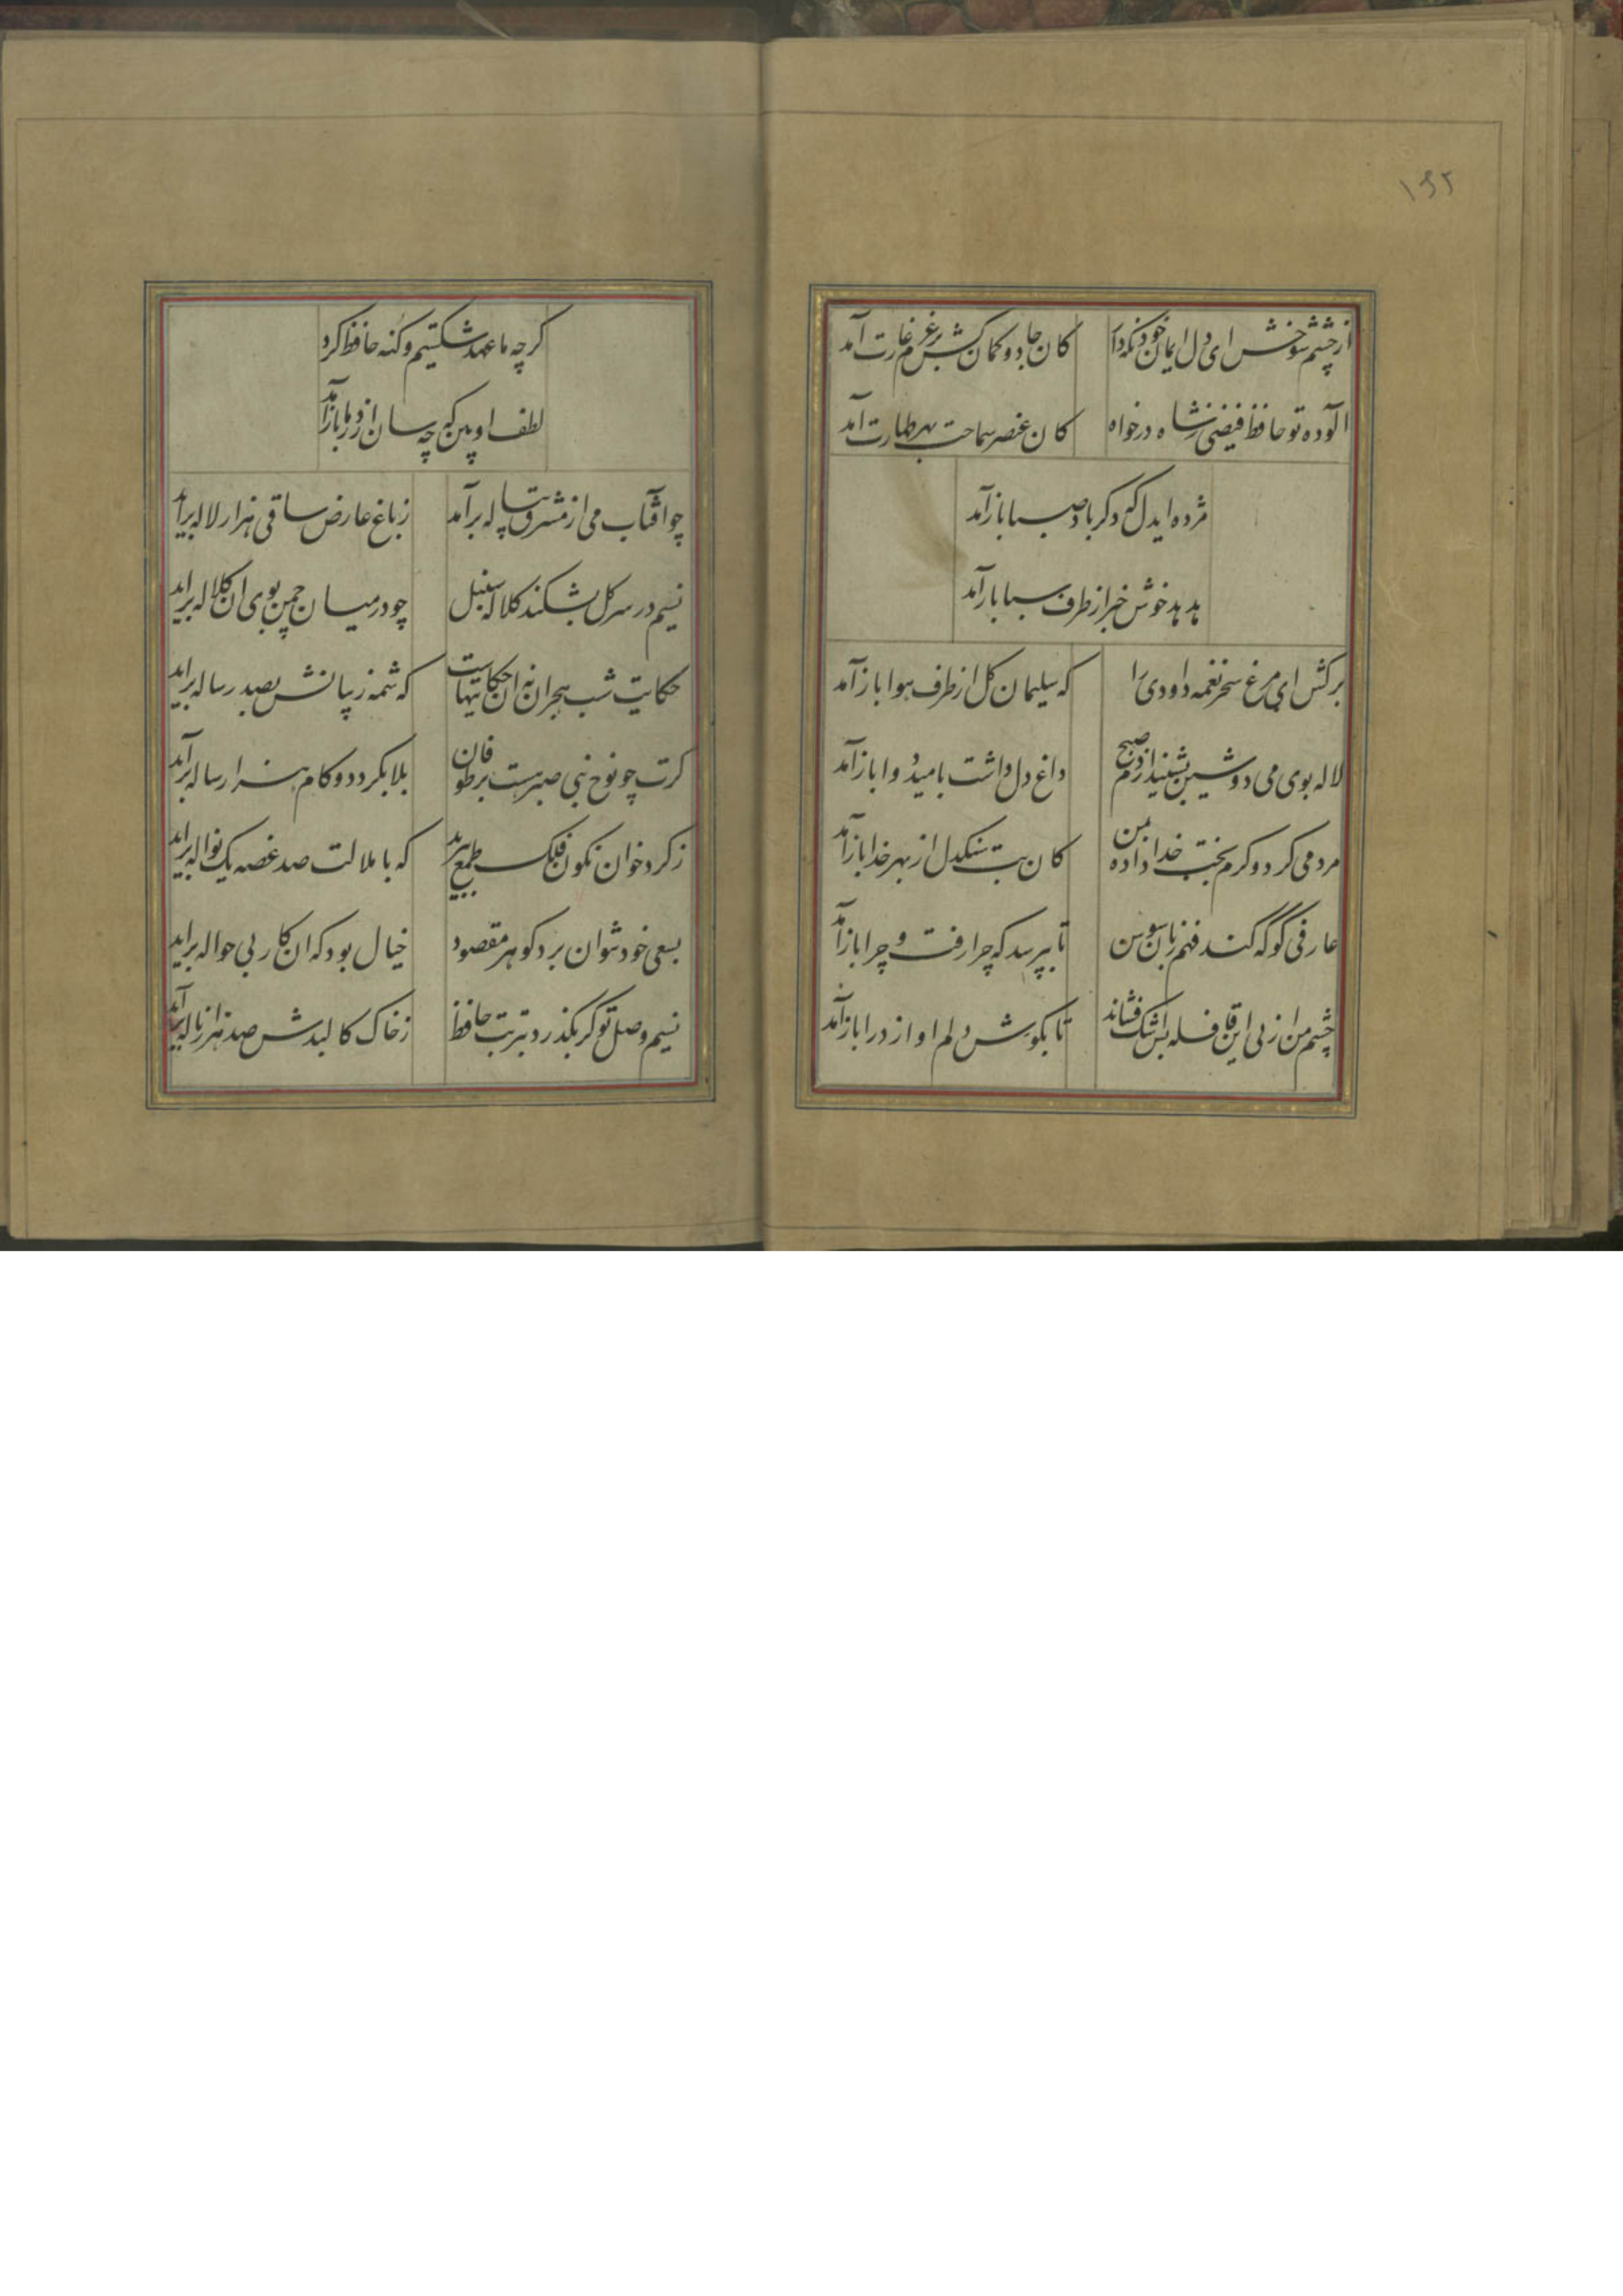 ۱۶۲
از چشم شوخش ای دل ایمان خود نگه دار
کان جادو کمان کش بر عزم غارت آمد
آلوده تو حافظ فیضی ز شاه درخواه
کان عنصر سماحت بهر طهارت آمد
مژده ایدل که دکر باد صبا باز آمد
هدهد خوش خبر از طرف سبا باز آمد
برکش ای مرغ سحر نغمه داودی را
که سلیمان کل از طرف هوا باز آمد
لاله بوی می دوشین بشنید از دم صبح
داغ دل داشت بامید دوا باز آمد
مردمی کرد و کرم بخت خدا داده من
کان بت سنکدل از بهر خدا باز آمد
عارفی کو که کند فهم زبان سوسن
تا بپرسد که چرا رفت و چرا باز آمد
چشم من از پی این قافله بس اشک فشاند
تا بکوش دلم اواز درا باز آمد
کرچه ما عهد شکستیم و کنه حافظ کرد
لطف او بین که چه سان از در ما باز آمد
چو آفتاب می از مشرق پیاله برآمد
ز باغ عارض ساقی هزار لاله براید
نسیم در سر کل بشکند کلاله سنبل
چو در میان چمن بوی ان کلاله براید
حکایت شب هجران نه ان حکایتهاست
که شمه ز بیانش بصد رساله براید
کرت چو نوح نبی صبر هست بر طوفان
بلا بکردد و کام هزار ساله برآید
ز کرد خوان نکون فلک طمع
که با ملالت صد غصه یک نواله براید
بسعی خود نتوان برد کوهر مقصود
خیال بود که ان کار بی حواله براید
نسیم وصل تو کر بکذرد بتربت حافظ
ز خاک کالبدش صد هزار ناله برآید